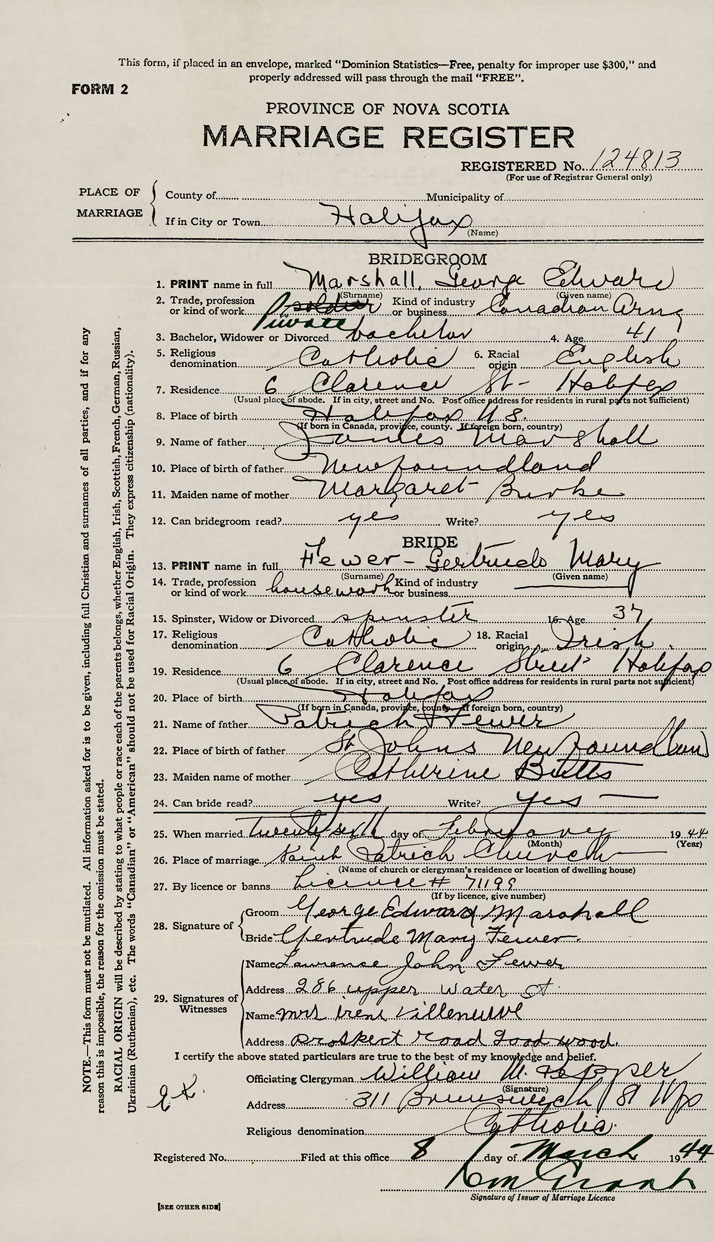 This form, if placed in an envelope, marked “Dominion Statistics—Free, penalty for improper use $300,” and
properly addressed will pass through the mail “FREE”.
FORM 2
PROVINCE OF NOVA SCOTIA
MARRIAGE REGISTER
REGISTERED No. 124813
(For use of Registrar General only)
PLACE OF MARRIAGE
County of Municipality of
If in City or Town Halifax
(Name)
BRIDEGROOM
1. PRINT name in full Marshall, George Edward
(Surname) (Given name)
2. Trade, profession or kind of work soldier Private Kind of industry or business Canadian Army
3. Bachelor, Widower or Divorced bachelor 4. Age 41
5. Religious denomination Catholic 6. Racial origin English
7. Residence 6 Clarence St- Halifax
(Usual place of abode. If in city, street and No. Post office address for residents in rural parts not sufficient)
8. Place of birth Halifax N.S.
(If born in Canada, province, county. If foreign born, country)
9. Name of father James Marshall
10. Place of birth of father Newfoundland
11. Maiden name of mother Margaret Burke
12. Can bridegroom read? yes Write? yes
BRIDE
13. PRINT name in full Fewer - Gertrude Mary
(Surname) (Given name)
14. Trade, profession or kind of work housework Kind of industry or business
15. Spinster, Widow or Divorced spinster 16. Age 37
17. Religious denomination Catholic 18. Racial origin Irish
19. Residence 6 Clarence Street Halifax
(Usual place of abode. If in city, street and No. Post office address for residents in rural parts not sufficient)
20. Place of birth Halifax
(If born in Canada, province, county. If foreign born, country)
21. Name of father Patrick Fewer
22. Place of birth of father St Johns Newfoundland
23. Maiden name of mother Catherine Butts
24. Can bride read? yes Write? yes
25. When married twenty sixth day of February 1944
(Month) (Year)
26. Place of marriage Saint Patrick Church
(Name of church or clergyman's residence or location of dwelling house)
27. By licence or banns Licence # 71199
(If by licence, give number)
28. Signature of
Groom George Edward Marshall
Bride Gertrude Mary Fewer.
29. Signatures of Witnesses
Name Lawrence John Fewer
Address 286 upper Water St
Name mrs irene Villeneuve
Address prospect road Goodwood.
I certify the above stated particulars are true to the best of my knowledge and belief.
Officiating Clergyman William M.
(Signature)
Address 311 Brunswick St Hfx
Religious denomination Catholic
Registered No. Filed at this office 8 day of March 1944
Grant
Signature of Issuer of Marriage Licence
[SEE OTHER SIDE]
NOTE.—This form must not be mutilated. All information asked for is to be given, including full Christian and surnames of all parties, and if for any
reason this is impossible, the reason for the omission must be stated.
RACIAL ORIGIN will be described by stating to what people or race each of the parents belongs, whether English, Irish, Scottish, French, German, Russian,
Ukrainian (Ruthenian), etc. The words “Canadian” or “American” should not be used for Racial Origin. They express citizenship (nationality).